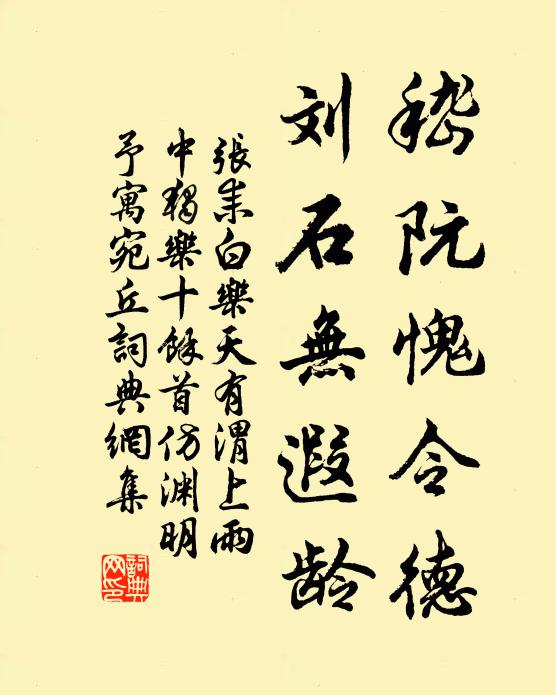 嵇阮愧令德
刘石無遐龄
張耒白樂天有渭上雨
中獨樂十餘首仿渊明
予寓宛丘詞典網集
詞典网印